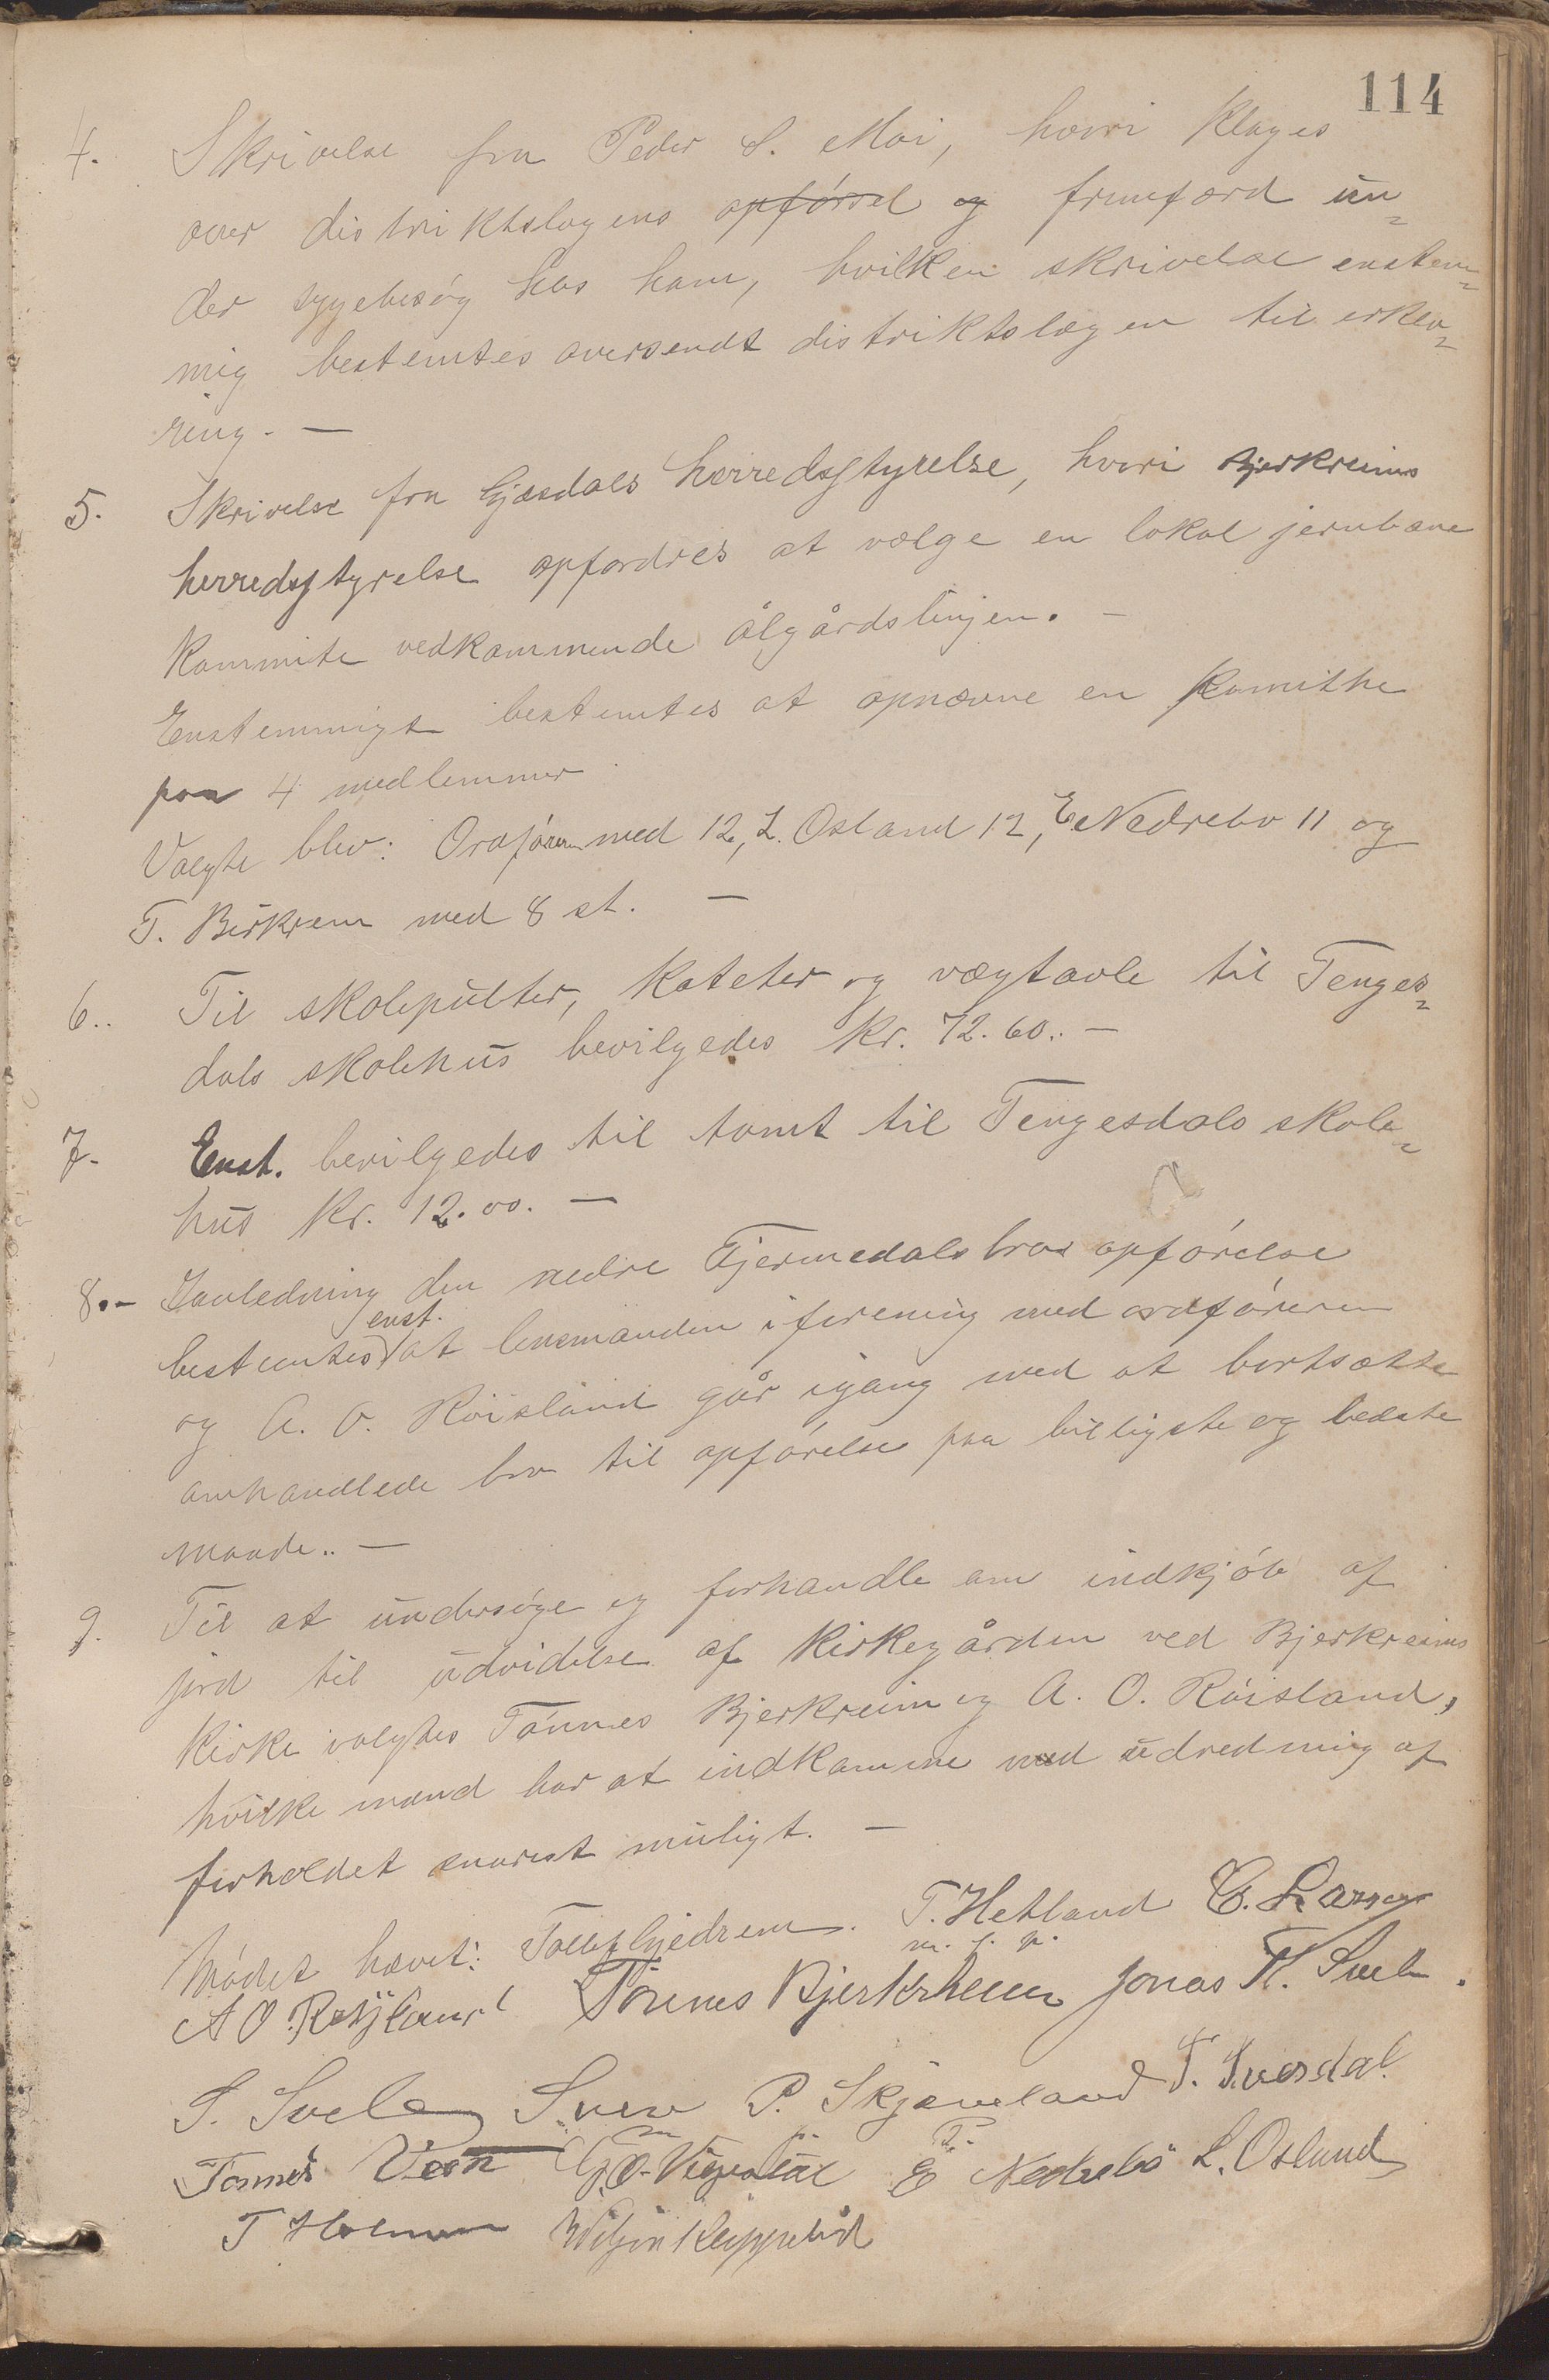 114
4. Skrivelse fra Peder S. Moi, hvori klages
over distriktslægens opførsel og fremfærd un-
der sygebesøg hos ham, hvilken skrivelse enstem-
mig bestemtes oversendt distriktslægen til erklæ-
ring. —
5. Skrivelse fra Gjæsdals herredsstyrelse, hvori Bjerkreims
herredsstyrelse opfordres at vælge en lokal jernbane
kommite vedkommende ålgårdslinjen. —
Enstemmigt bestemtes at opnævne en komithe
paa 4 medlemmer
Valgte blev: Ordføreren med 12, L. Osland 12, E Nedrebø 11 og
T. Birkrem med 8 st. —
6.. Til skolepulter, kateter og vægtavle til Tenges-
dals skolehus bevilgedes kr. 72.60.. —
7. Enst. bevilgedes til tomt til Tengesdals skole-
hus kr. 12.00. —
8.- Ianledning den nedre Tjermedalsbros opførelse
enst.
bestemtes at lensmanden i forening med ordføreren
og A. O. Røisland går igang med at bortsætte
omhandlede bro til opførelse paa billigste og bedste
maade.. —
9. Til at undersøge og forhandle om indkjøb af
jord til udvidelse af kirkegården ved Bjerkreims
kirke valgtes Tønnes Bjerkreim og A. O. Røisland,
hvilke mænd har at indkomme med udredning af
forholdet snarest muligt. —
Mødet hævet: Tollef Gjedrem. T. Hetland C. Larsen
m. f. p.
A O. Røysland Tønnes Bjerkrheim Jonas K. Svela.
S. Svela Svern P. Skjæveland T. Ivesdal.
Tønnes Versk G. O. Vigesdal E Nedrebø L. Osland
T Holmen Wiljen Kleppelid